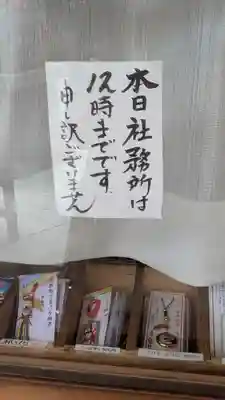 本日社務所は
12時までです
申し訳ございません